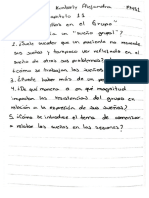 Humberto Alejandro
Capítulo 11
en el Grupo"
un "sueño grupal"?
2. ¿Puede suceder que un paciente no recuerde
sus sueños y tampoco ver reflejado en el
sueño de otro sus problemas?
¿Cómo se analizan los sueños?
3. ¿Puede haber más de un
4. ¿De qué manera o en qué magnitud
impactan las resistencias del grupo en
relación a la expresión de sus sueños?
5. ¿Cómo se introduce el tema de compartir
o hablar sobre sueños en las sesiones?